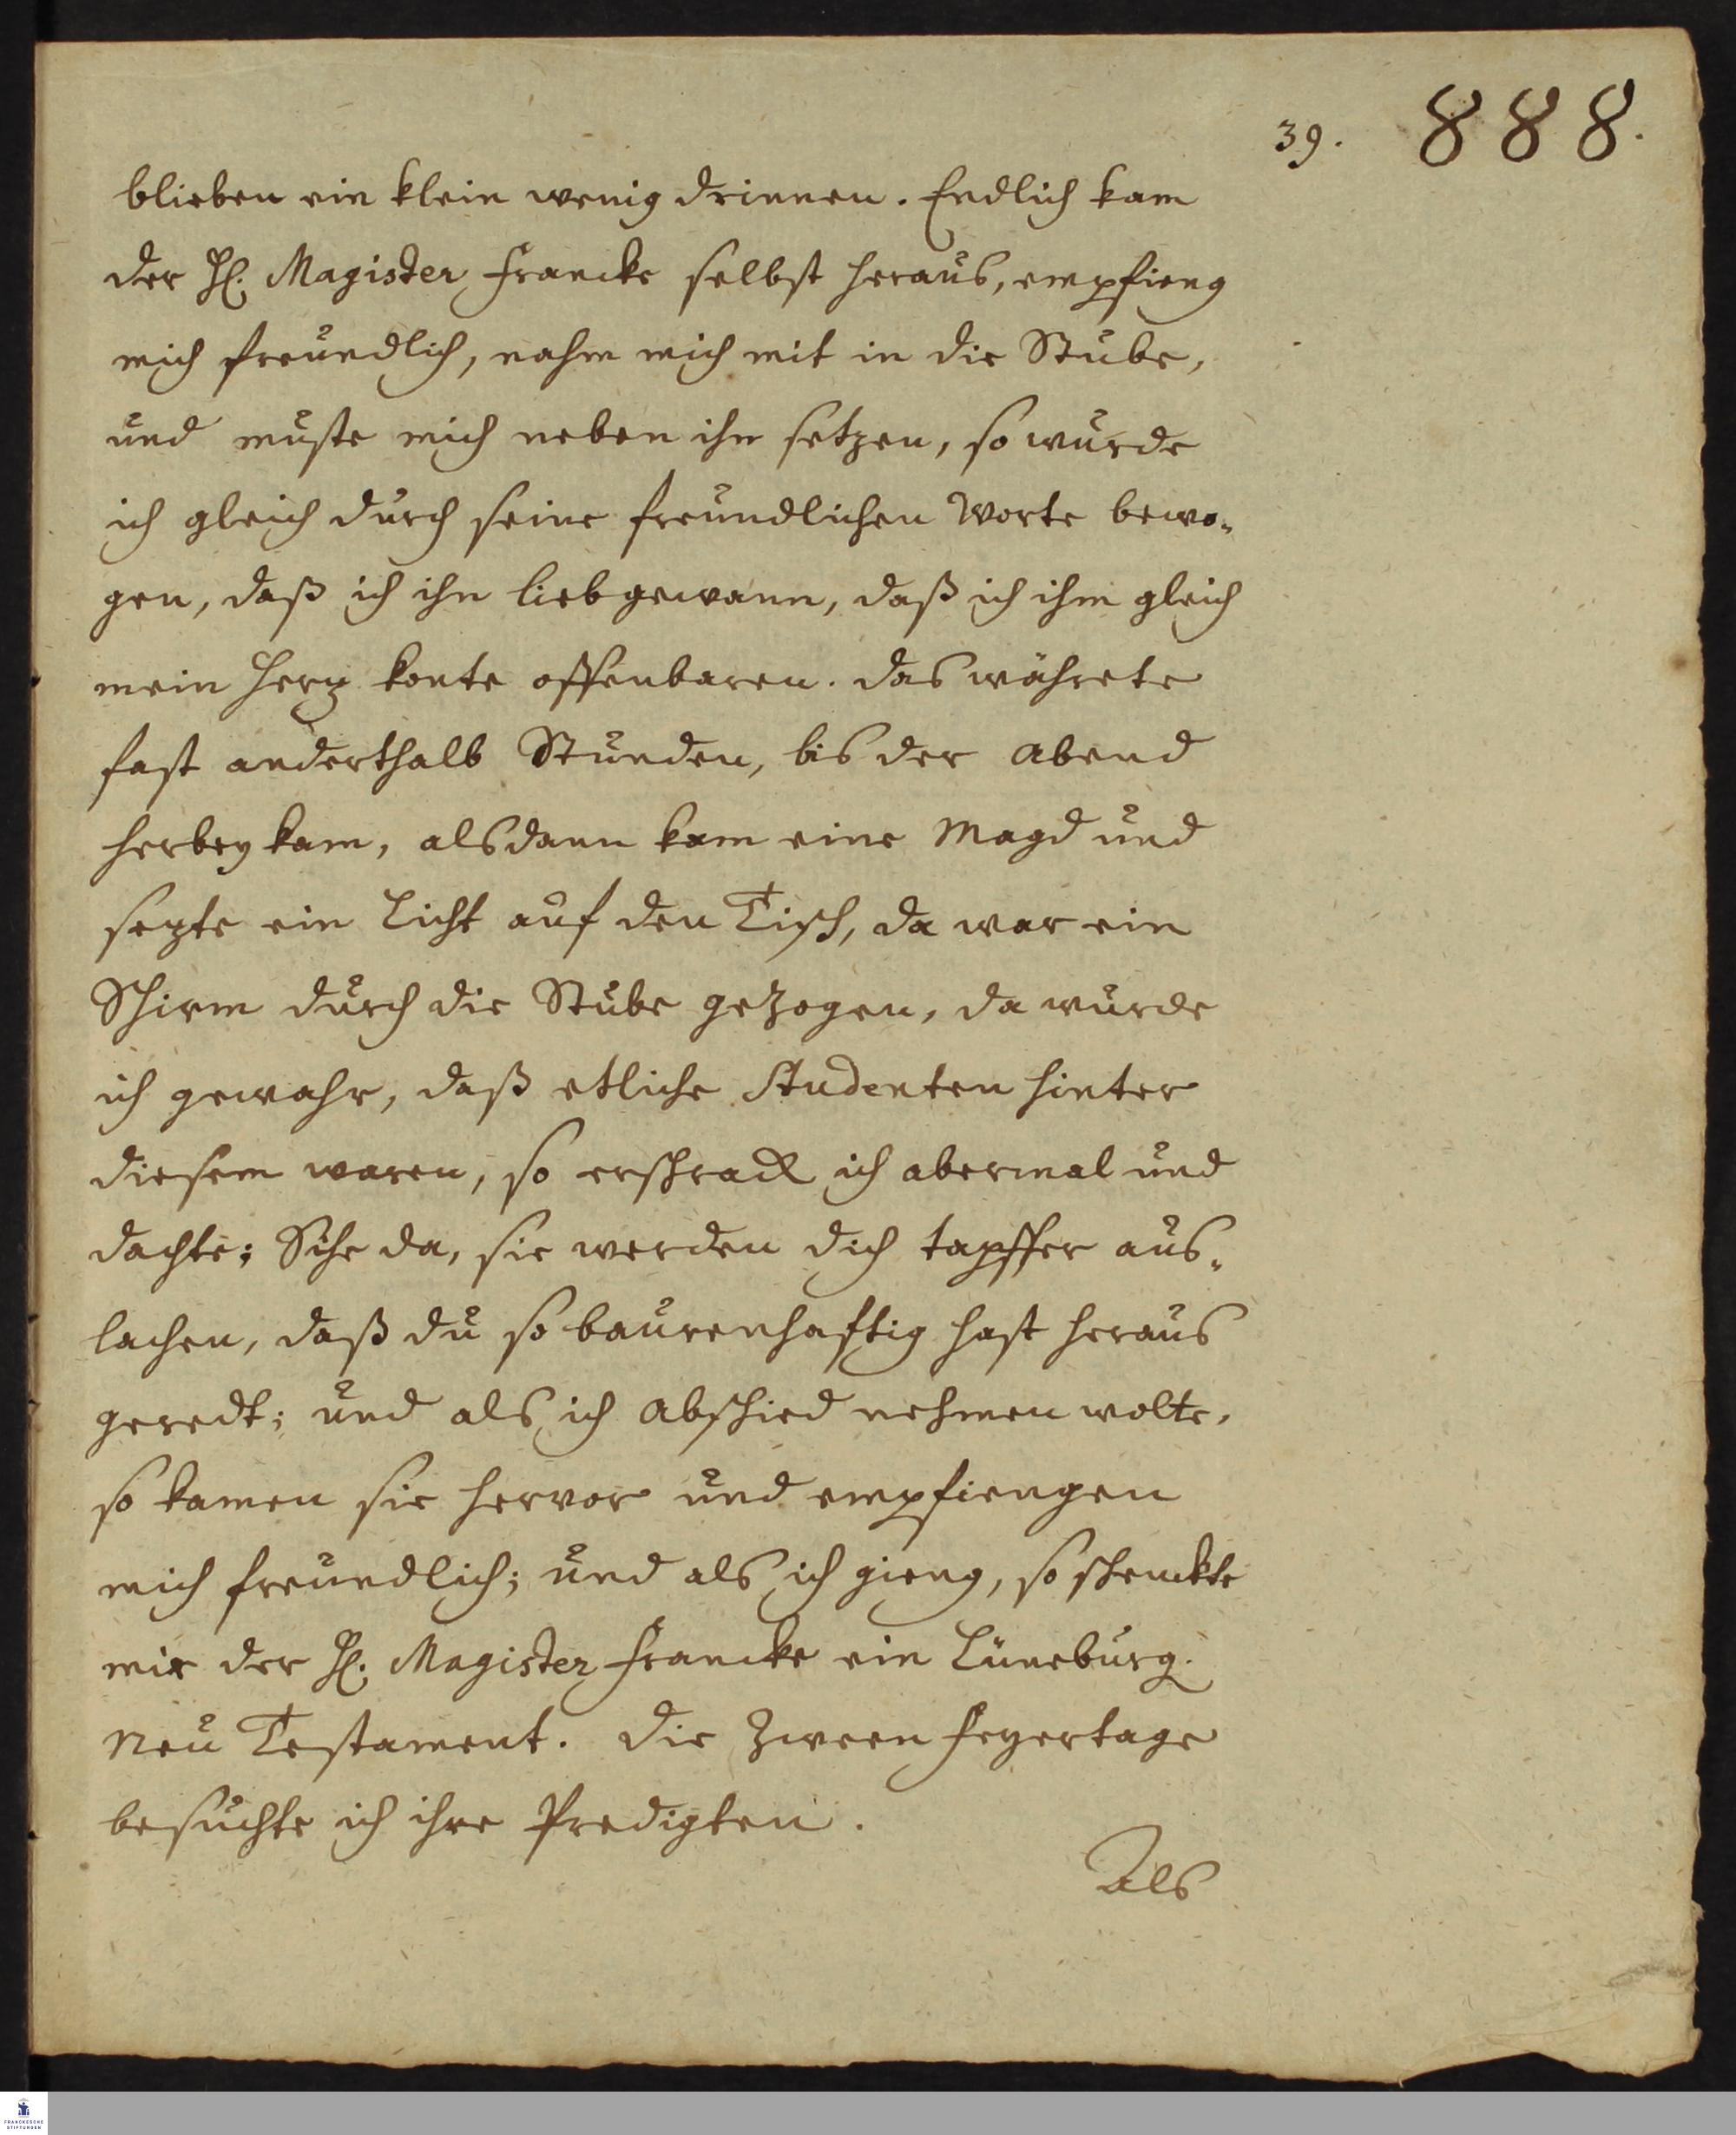 39. 888.
blieben ein klein wenig drinnen. Endlich kam
der H. Magister Francke selbst heraus, empfieng
mich freundlich, nahm mich mit in die Stube,
und muste mich neben ihn setzen, so wurde
ich gleich durch seine freundlichen Worte bewo-
gen, daß ich ihn lieb gewann, daß ich ihm gleich
mein Herz konte offenbaren. das währete
fast anderthalb Stunden, bis der Abend
herbey kam, alsdann kam eine Magd und
sezte ein Licht auf den Tisch, da war ein
Schirm durch die Stube gezogen, da wurde
ich gewahr, daß etliche Studenten hinter
diesem waren, so erschrack ich abermal und
dachte; Sihe da, sie werden dich tapffer aus-
lachen, daß du so baurenhafftig hast heraus
geredt; und als ich Abschied nehmen wolte,
so kamen sie hervor und empfiengen
mich freundlich; und als ich gieng, so schenckte
mir der H. Magister Francke ein Lüneburg.
Neu Testament. Die zween Feyertage
besuchte ich ihre Predigten.
Als
FRANCKESCHE
STIFTUNGEN